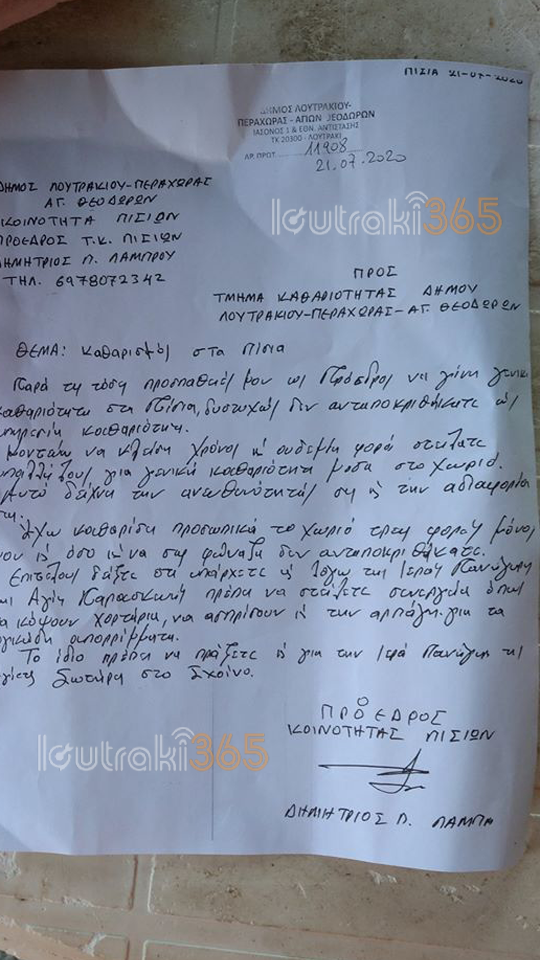 ΠΙΣΙΑ 21-07-2020
ΔΗΜΟΣ ΛΟΥΤΡΑΚΙΟΥ-
ΠΕΡΑΧΩΡΑΣ - ΑΓΙΩΝ ΘΕΟΔΩΡΩΝ
ΙΑΣΟΝΟΣ 1 & ΕΘΝ. ΑΝΤΙΣΤΑΣΗΣ
ΤΚ 20300 - ΛΟΥΤΡΑΚΙ
ΑΡ. ΠΡΩΤ. 11908
21.07.2020
ΔΗΜΟΣ ΛΟΥΤΡΑΚΙΟΥ-ΠΕΡΑΧΩΡΑΣ
ΑΓ. ΘΕΟΔΩΡΩΝ
ΚΟΙΝΟΤΗΤΑ ΠΙΣΙΩΝ
ΠΡΟΕΔΡΟΣ Τ.Κ. ΠΙΣΙΩΝ
ΔΗΜΗΤΡΙΟΣ Π. ΛΑΜΠΡΟΥ
ΤΗΛ. 6978072342
loutraki365
ΠΡΟΣ
ΤΜΗΜΑ ΚΑΘΑΡΙΟΤΗΤΑΣ ΔΗΜΟΥ
ΛΟΥΤΡΑΚΙΟΥ-ΠΕΡΑΧΩΡΑΣ-ΑΓ. ΘΕΟΔΩΡΩΝ
ΘΕΜΑ: Καθαρισμός στα Πίσια
Παρά τις τόση προσπαθειές μου ως Πρόεδρος να γίνη γενική
καθαριότητα στα Πίσια, δυστυχώς δεν ανταποκριθήκατε ως
υπηρεσία καθαριότητα.
να κλείση χρόνος κ' ουδεμία φορά στείλατε
για γενική καθαριότητα μέσα στο χωριό.
Αυτό δείχνη την ανευθυνότητάς σης κ την αδιαφορία
Έχω καθαρίση προσωπικά το χωριό τρεις φορές μόνος
μου κ όσο κ να σας φώναζα δεν ανταποκριθήκατε.
Επιτέλους δείξτε ότι υπάρχετε κ λόγω της Ιεράς Πανήγυρη
της Αγίας Παρασκευής πρέπει να στείλετε συνεργεία όπως
να κόψουν χορτάρια, να ασπρίσουν κ την αρπάγη για τα
ογκώδη απορρίμματα.
Το ίδιο πρέπει να πράξετε κ για την Ιερά Πανήγυρη της
Σωτήρα στο Σχοίνο.
Ο
ΠΡΟΕΔΡΟΣ
ΚΟΙΝΟΤΗΤΑΣ ΠΙΣΙΩΝ
loutraki365
ΔΗΜΗΤΡΙΟΣ Π. ΛΑΜΠΡ